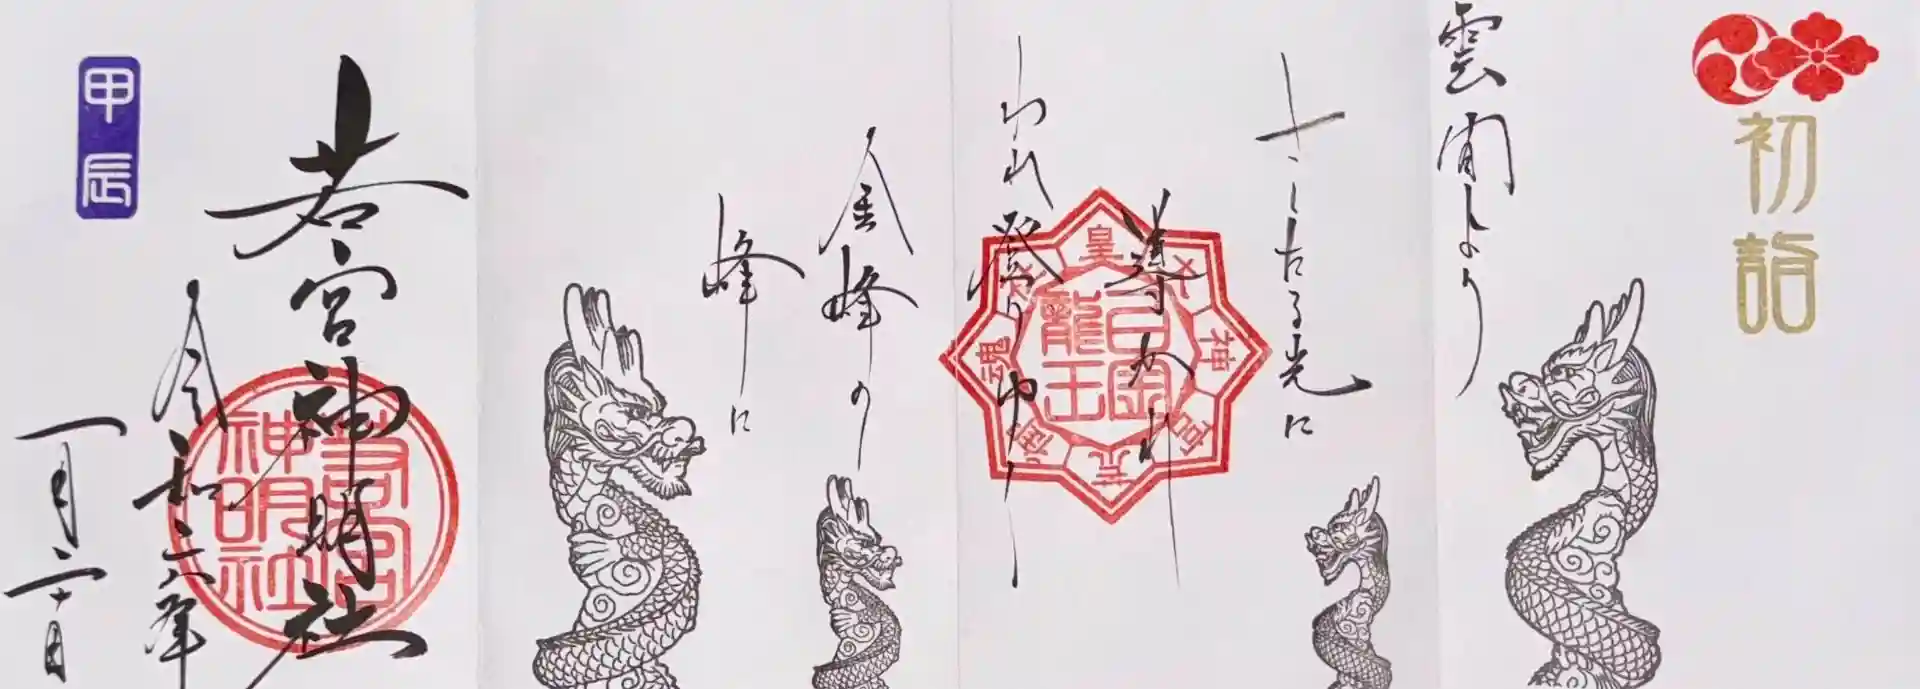 初詣
雲間より
さしたる光に
導かれ
われ登りゆく
金峰の
峰に
白金龍王
若宮神明社
若宮神明社
令和六年
一月二十日
甲辰